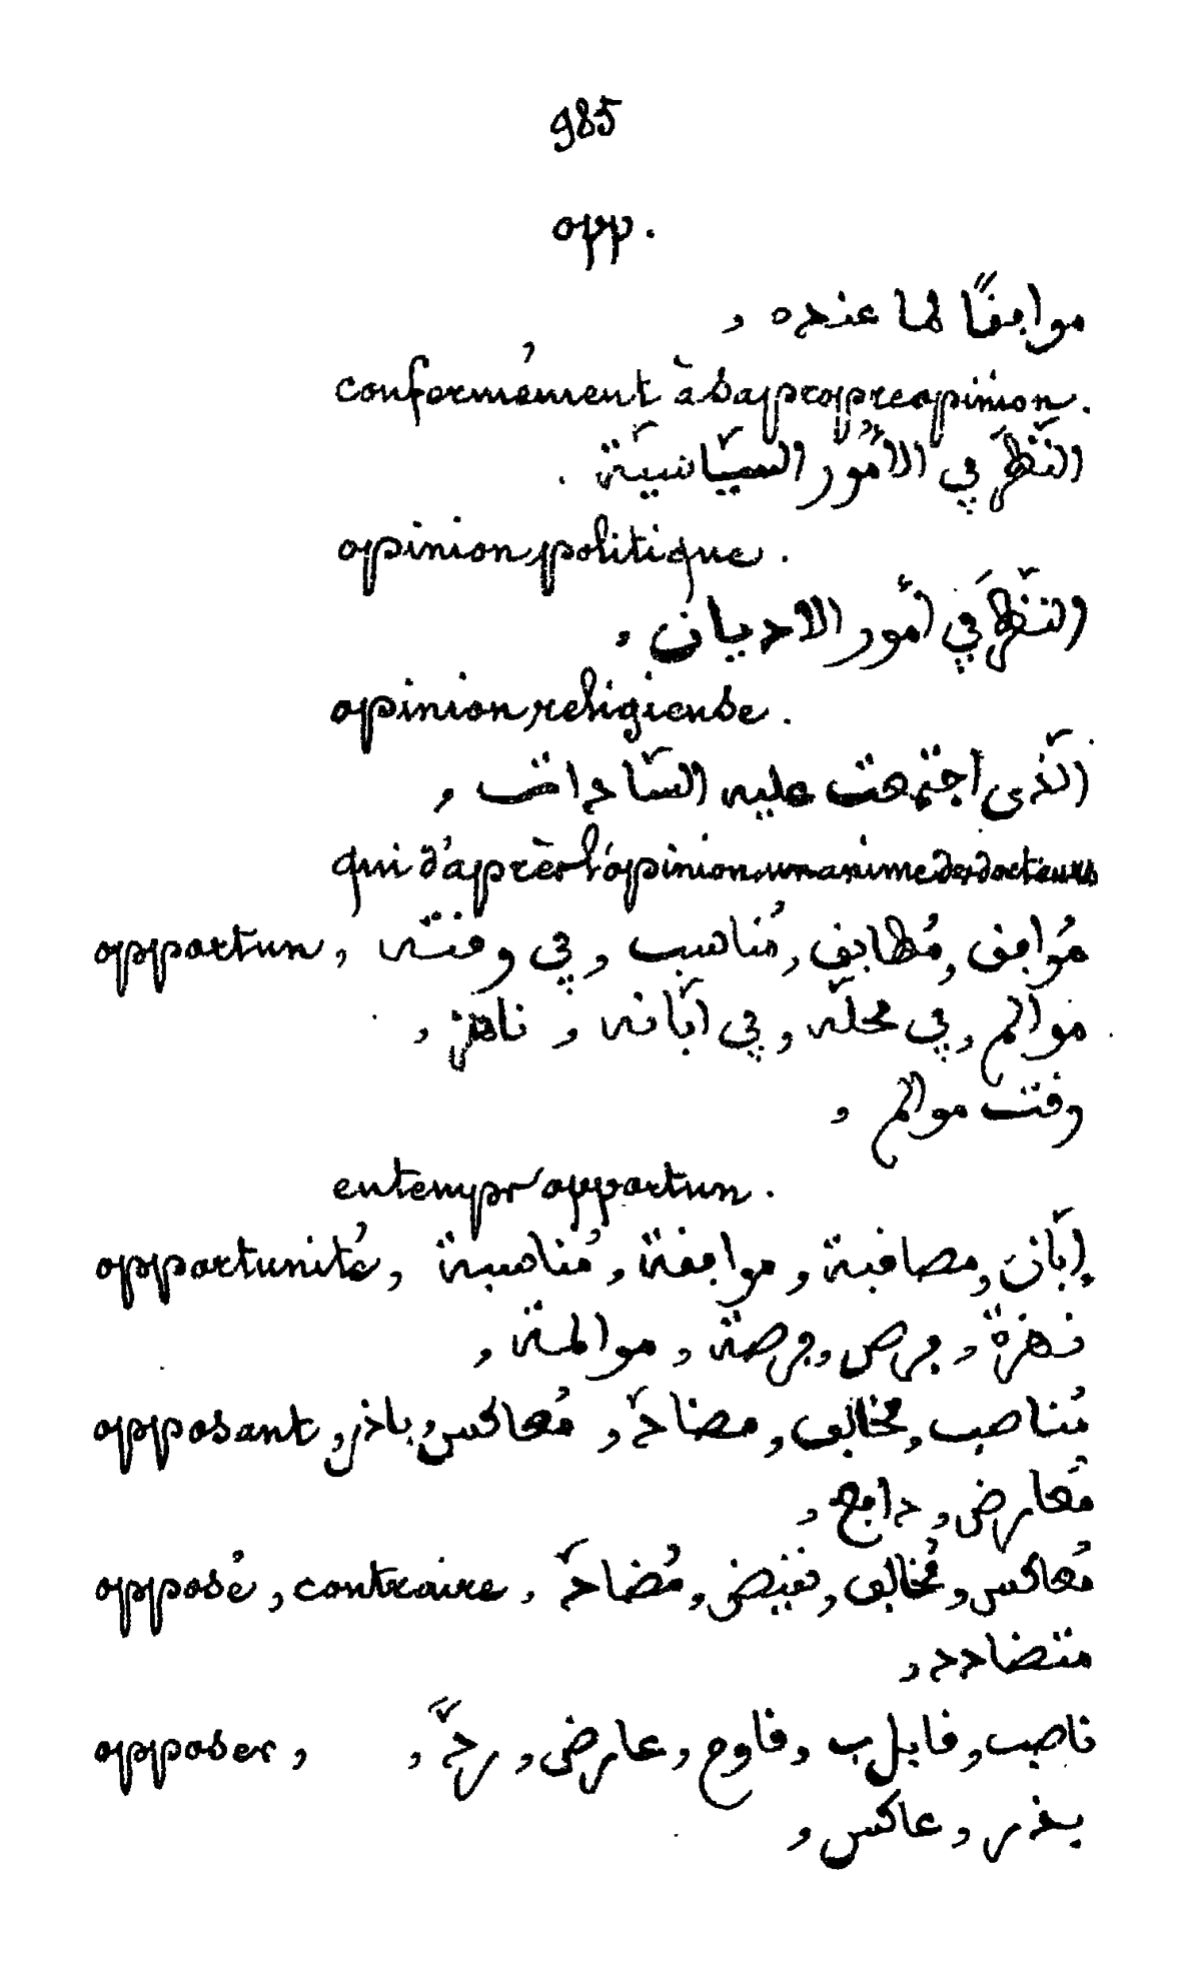 985
opp.
موافقًا لما عنده ,
conformément à sa propre opinion.
النَّظَر في الأُمُور السِّيَاسيَّة .
opinion politique.
النَّظَر في أُمور الاديان ,
opinion religieuse.
الَّذى اجتمعت عليه السَّادات ,
qui d'après l'opinion unanime des docteurs
opportun , مُوافق , مُطابق , مُناسب , في وقته
موالم , في محلّه , في ابّانه , ناهز ,
وقت موالم ,
en temps opportun.
opportunité , إبّان , مصاقبة , موافقة , مُناسبة
نهزة , فرص , فرصة , موالمة ,
opposant , مُناصب , مخالف , مضادّ , مُعاكس ,
مُعارض , دافع ,
opposé , contraire , مُعاكس , مُخالف , نقيض , مُضادّ
متضادد ,
opposer , ناصب , قابل ب , قاوح , عارض , ردّ ,
, عاكس ,